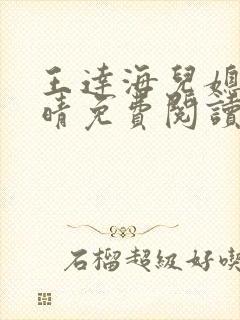 王達海兒媳
晴免費閱讀
石榴超級好喫